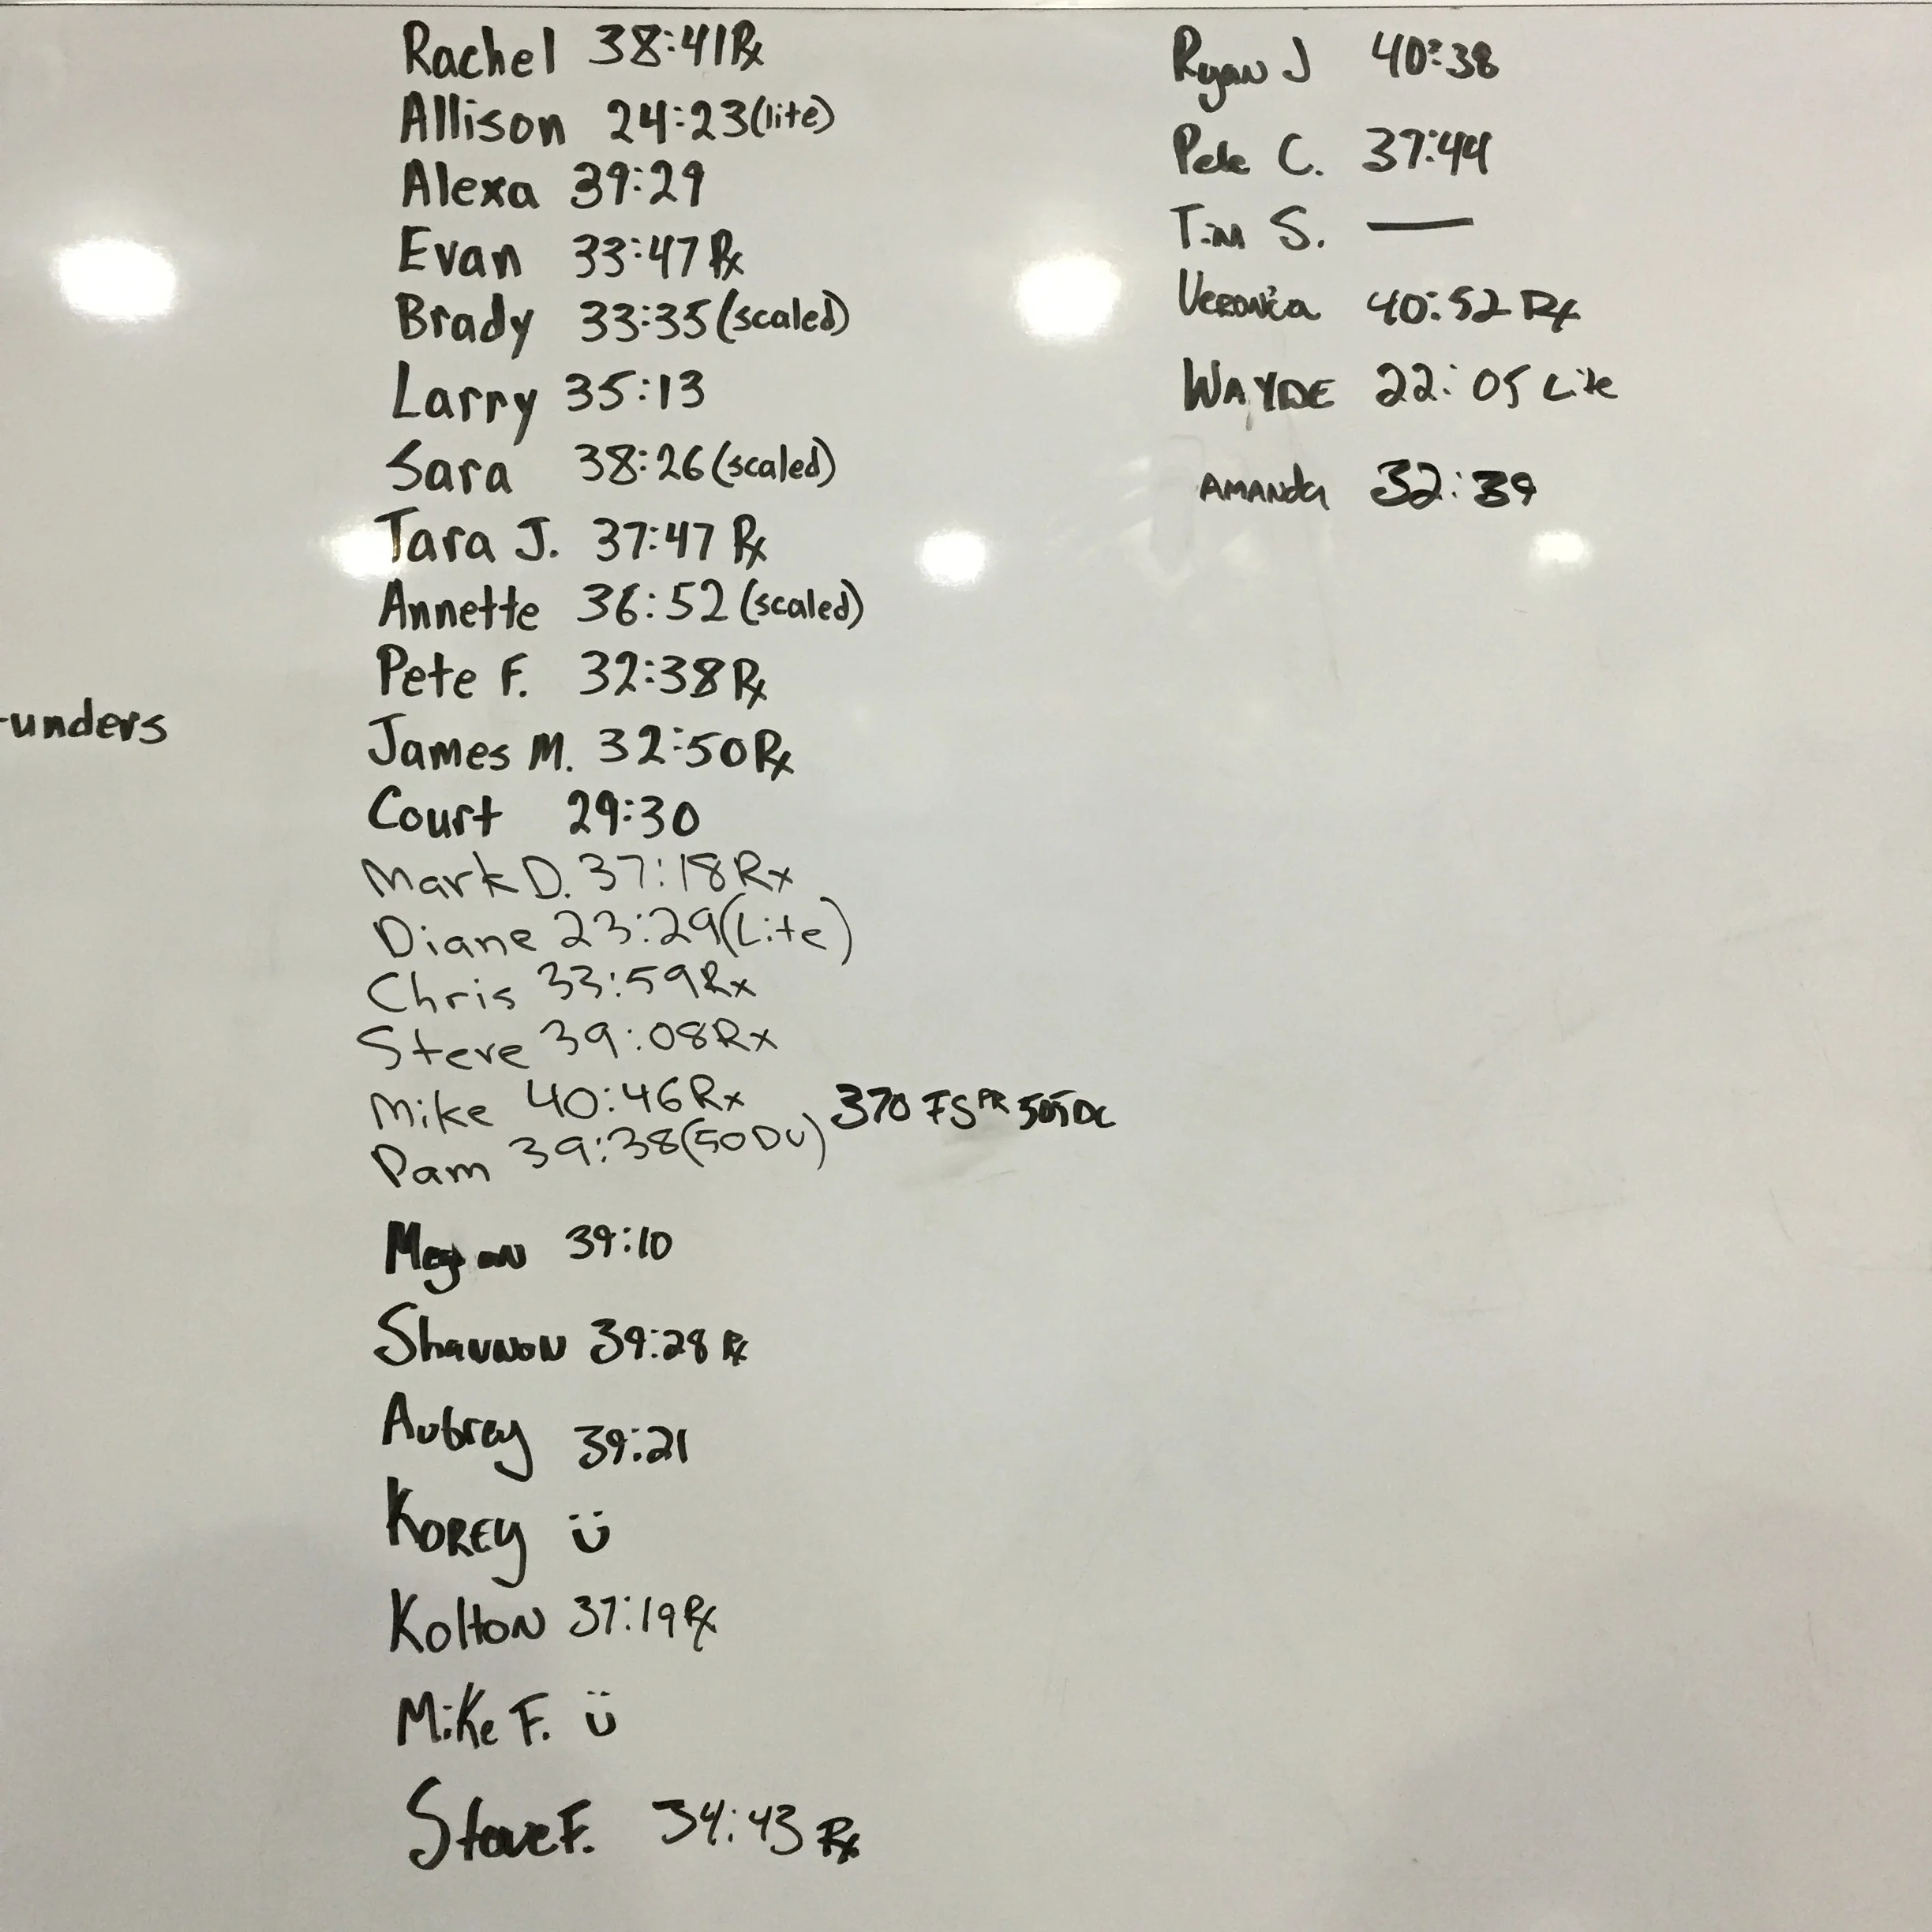 Rachel 38:41 Rx
Allison 24:23 (lite)
Alexa 39:29
Evan 33:47 Rx
Brady 33:35 (scaled)
Larry 35:13
Sara 38:26 (scaled)
Tara J. 37:47 Rx
Annette 36:52 (scaled)
Pete F. 32:38 Rx
-unders
James M. 32:50 Rx
Court 29:30
Mark D. 37:18 Rx
Diane 23:29 (Lite)
Chris 33:59 Rx
Steve 39:08 Rx
Mike 40:46 Rx 370 FS PR
Pam 39:38 (50 DU)
Megan 39:10
Shannon 39:28 Rx
Aubrey 39:21
KOREY ü
Kolton 37:19 Rx
Mike F. ü
Steve F. 34:43 Rx
Ryan J 40:38
Pete C. 37:44
Tim S. —
Veronica 40:52 Rx
WAYDE 22:05 Lite
AMANda 32:39